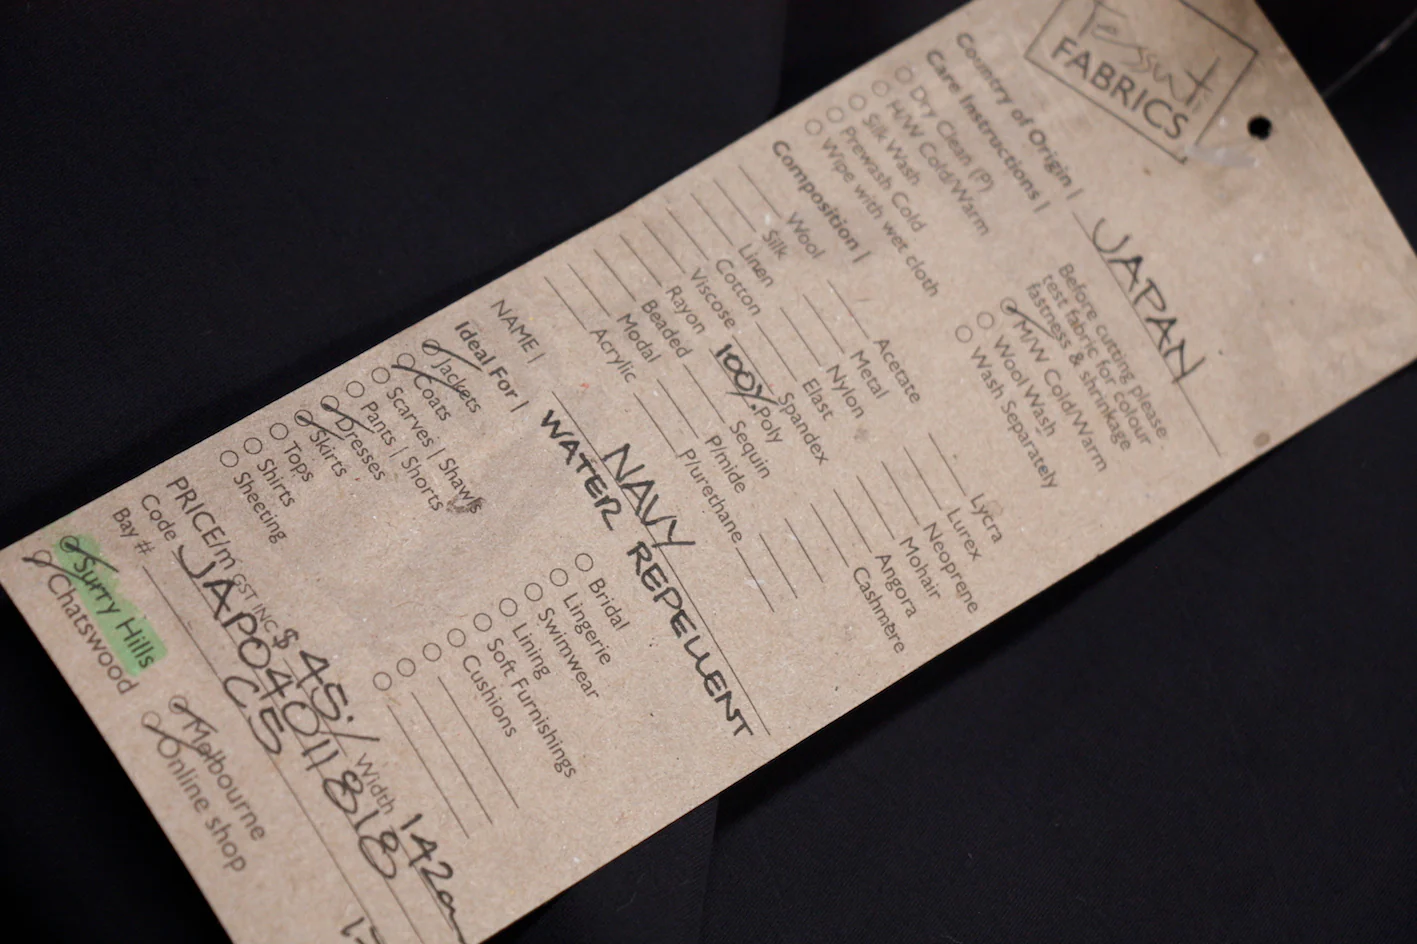 Tessuti
FABRICS
Country of Origin | JAPAN
Care Instructions |
Before cutting please
test fabric for colour
fastness & shrinkage
Dry Clean (P)
H/W Cold/Warm
Silk Wash
Prewash Cold
Wipe with wet cloth
M/W Cold/Warm
Wool Wash
Wash Separately
Composition |
Wool
Silk
Linen
Cotton
Viscose
Rayon
Beaded
Modal
Acrylic
Acetate
Metal
Nylon
Elast
Spandex
100% Poly
Sequin
P/mide
P/urethane
Lycra
Lurex
Neoprene
Mohair
Angora
Cashmere
NAME | NAVY
WATER REPELLENT
Ideal For |
Jackets
Coats
Scarves | Shawls
Pants | Shorts
Dresses
Skirts
Tops
Shirts
Sheeting
Bridal
Lingerie
Swimwear
Lining
Soft Furnishings
Cushions
PRICE/m GST INC $45./ Width 142cm
Code JAP04011818
Bay # C5
Surry Hills
Chatswood
Melbourne
Online shop